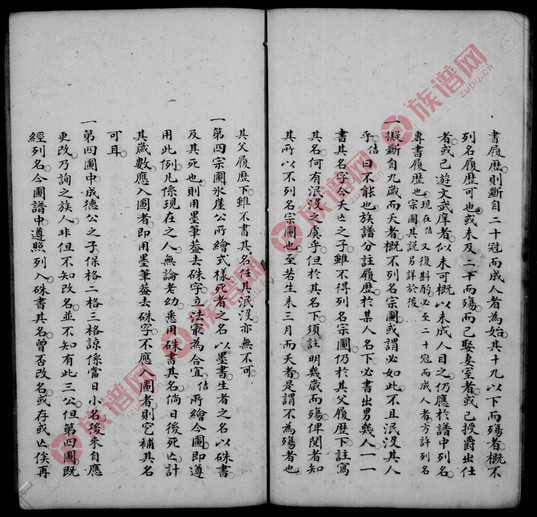 書履歷則斷自二十冠而成人者為始其十九以下而殤者概不
列名履歷可也或未及二十而殤而已娶妻室者或已授爵出仕
者或已遊文武庠者似未可概以未成人目之仍應於譜中列名
專書履歷也
現在估又復斟酌必至二十冠而成人者方許列名
宗圖其說另詳於後
一擬斷自九歲而夭者概不列名宗圖或謂必如此不且泯沒其人
乎估曰不能也族譜分註履歷於某人名下必書出男與人一一
書其名字今夭亡之子雖不得列名宗圖仍於其父履歷下註寫
其名何有泯沒之虞乎但於其名下須註明幾歲而殤俾閱者知
其所以不列名宗圖也至若生未三月而夭者是謂不為殤者也
其父履歷下雖不書其名任其泯沒亦無不可
一第四宗圖永崖公所繪式樣死者之名以墨書生者之名以硃書
及其死也則用墨筆蓋去硃字立法最為合宜估所繪今圖即遵
用此例凡係現在之人無論老幼悉用硃書其名倘日後死亡計
其歲數應入圖者即用墨筆蓋去硃字不應入圖者則空補其名
可耳
一第四圖中成德公之子保格二格三格諒係當日小名後來自應
更改乃詢之族人非但不知改名並不知有此三公但第四圖既
經列名今圖譜中遵照列入硃書其名曾否改名或存或亡俟再
族谱网
zupu.cn